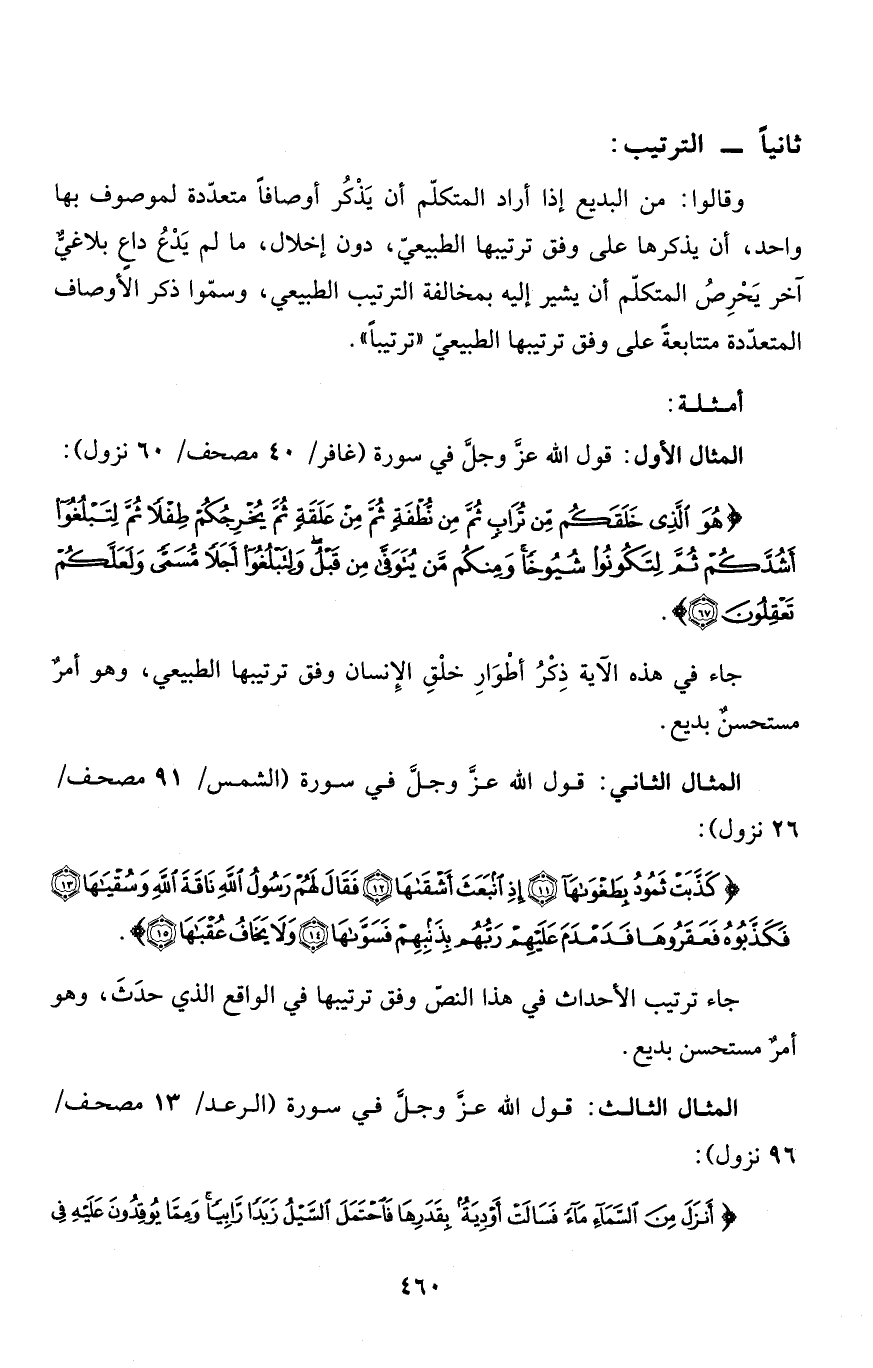 ثانياً ــ الترتيب:
وقالوا: من البديع إذا أراد المتكلّم أن يَذْكُر أوصافاً متعدّدة لموصوف بها
واحد، أن يذكرها على وفق ترتيبها الطبيعيّ، دون إخلال، ما لم يَدْعُ داعٍ بلاغيٌّ
آخر يَحْرِصُ المتكلّم أن يشير إليه بمخالفة الترتيب الطبيعي، وسمّوا ذكر الأوصاف
المتعدّدة متتابعةً على وفق ترتيبها الطبيعيّ «ترتيباً».
أمـثـلـة:
المثال الأول: قول الله عزَّ وجلَّ في سورة (غافر/ ٤٠ مصحف/ ٦٠ نزول):
﴿هُوَ ٱلَّذِى خَلَقَكُم مِّن تُرَابٍ ثُمَّ مِن نُّطْفَةٍ ثُمَّ مِنْ عَلَقَةٍ ثُمَّ يُخْرِجُكُمْ طِفْلًا ثُمَّ لِتَبْلُغُوٓا۟
أَشُدَّكُمْ ثُمَّ لِتَكُونُوا۟ شُيُوخًا ۚ وَمِنكُم مَّن يُتَوَفَّىٰ مِن قَبْلُ ۖ وَلِتَبْلُغُوٓا۟ أَجَلًا مُّسَمًّى وَلَعَلَّكُمْ
تَعْقِلُونَ ۝٦٧﴾.
جاء في هذه الآية ذِكْرُ أطْوَارِ خلْقِ الإنسان وفق ترتيبها الطبيعي، وهو أمرٌ
مستحسنٌ بديع.
المثال الثاني: قول الله عزَّ وجلَّ في سورة (الشمس/ ٩١ مصحف/
٢٦ نزول):
﴿كَذَّبَتْ ثَمُودُ بِطَغْوَىٰهَآ ۝١١ إِذِ ٱنۢبَعَثَ أَشْقَىٰهَا ۝١٢ فَقَالَ لَهُمْ رَسُولُ ٱللَّهِ نَاقَةَ ٱللَّهِ وَسُقْيَٰهَا ۝١٣
فَكَذَّبُوهُ فَعَقَرُوهَا فَدَمْدَمَ عَلَيْهِمْ رَبُّهُم بِذَنۢبِهِمْ فَسَوَّىٰهَا ۝١٤ وَلَا يَخَافُ عُقْبَٰهَا ۝١٥﴾.
جاء ترتيب الأحداث في هذا النصّ وفق ترتيبها في الواقع الذي حدَثَ، وهو
أمرٌ مستحسن بديع.
المثال الثالث: قول الله عزَّ وجلَّ في سورة (الرعد/ ١٣ مصحف/
٩٦ نزول):
﴿أَنزَلَ مِنَ ٱلسَّمَآءِ مَآءً فَسَالَتْ أَوْدِيَةٌۢ بِقَدَرِهَا فَٱحْتَمَلَ ٱلسَّيْلُ زَبَدًا رَّابِيًا ۚ وَمِمَّا يُوقِدُونَ عَلَيْهِ فِى
٤٦٠